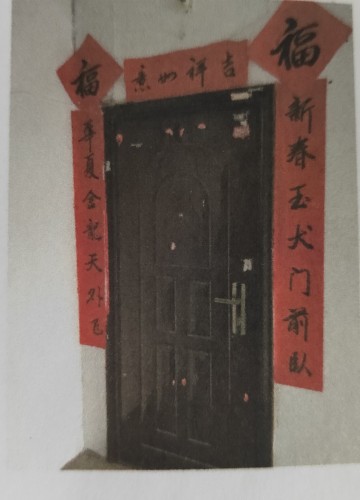 福
福
吉祥如意
新春玉犬门前臥
華夏金龙天外飞